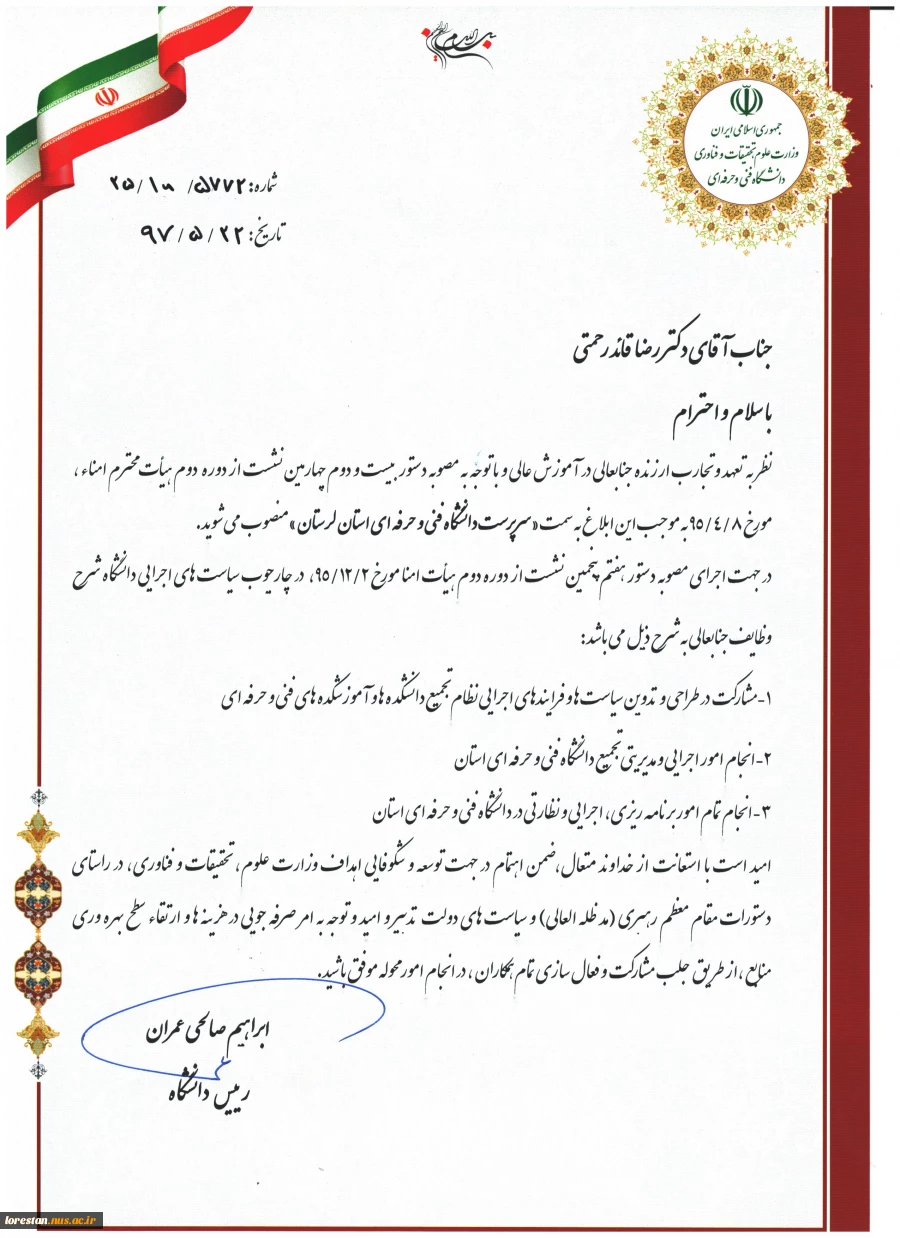 بسم الله الرحمن الرحیم
جمهوری اسلامی ایران
وزارت علوم، تحقیقات و فناوری
دانشگاه فنی و حرفه ای
شماره: ۲۵/۱۰/۵۷۷۲
تاریخ: ۹۷/۵/۲۲
جناب آقای دکتر رضا قائدرحمتی
باسلام و احترام
نظر به تعهد و تجارب ارزنده جنابعالی در آموزش عالی و با توجه به مصوبه دستور بیست و دوم چهارمین نشست از دوره دوم هیأت محترم امناء ،
مورخ ۹۵/٤/۸ به موجب این ابلاغ به سمت «سرپرست دانشگاه فنی و حرفه ای استان لرستان» منصوب می شوید.
در جهت اجرای مصوبه دستور هفتم پنجمین نشست از دوره دوم هیأت امنا مورخ ۹۵/۱۲/۲، در چارچوب سیاست های اجرایی دانشگاه شرح
وظایف جنابعالی به شرح ذیل می باشد:
۱-مشارکت در طراحی و تدوین سیاست ها و فرایندهای اجرایی نظام تجمیع دانشکده ها و آموزشکده های فنی و حرفه ای
۲-انجام امور اجرایی و مدیریتی تجمیع دانشگاه فنی و حرفه ای استان
۳-انجام تمام امور برنامه ریزی، اجرایی و نظارتی در دانشگاه فنی و حرفه ای استان
امید است با استعانت از خداوند متعال، ضمن اهتمام در جهت توسعه و شکوفایی اهداف وزارت علوم، تحقیقات و فناوری، در راستای
دستورات مقام معظم رهبری (مد ظله العالی) و سیاست های دولت تدبیر و امید و توجه به امر صرفه جویی در هزینه ها و ارتقاء سطح بهره وری
منابع ، از طریق جلب مشارکت و فعال سازی تمام همکاران ، در انجام امور محوله موفق باشید.
ابراهیم صالحی عمران
رییس دانشگاه
lorestan.nus.ac.ir